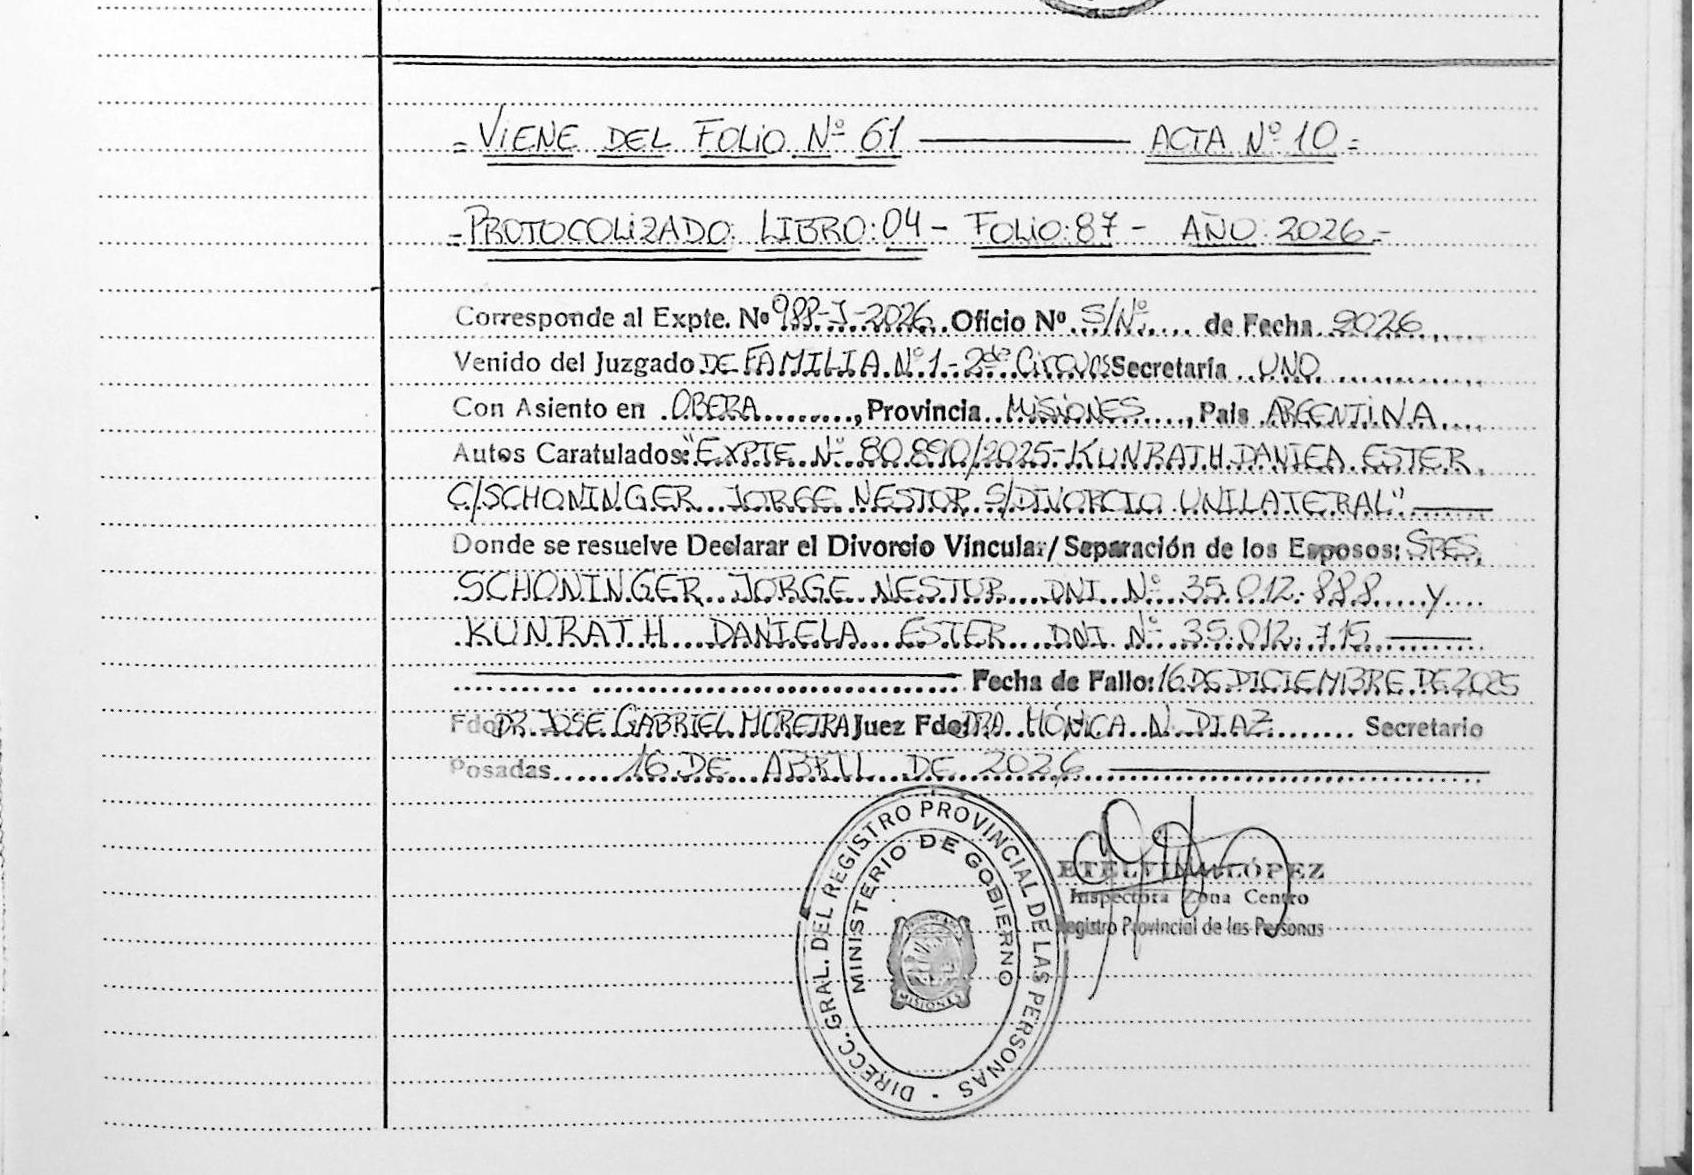 = VIENE DEL FOLIO Nº 61 ——— ACTA Nº 10 =
= PROTOCOLIZADO: LIBRO: 04 - FOLIO: 87 - AÑO: 2026 =
Corresponde al Expte. Nº 988-J-2026. Oficio Nº S/Nº. de Fecha 2026
Venido del Juzgado DE FAMILIA Nº 1 - 2da Circuns Secretaría UNO
Con Asiento en OBERA, Provincia MISIONES, País ARGENTINA
Autos Caratulados: "EXPTE Nº 80.890/2025-KUNRATH DANIEA ESTER
C/SCHONINGER JORGE NESTOR S/DIVORCIO UNILATERAL"
Donde se resuelve Declarar el Divorcio Vincular/Separación de los Esposos: SRES.
SCHONINGER JORGE NESTOR DNI Nº 35.012.888 y
KUNRATH DANIELA ESTER DNI Nº 35.012.715
Fecha de Fallo: 16 DE DICIEMBRE DE 2025
Fdo DR. JOSE GABRIEL MOREIRA Juez Fdo: DRA. MÓNICA N. DIAZ Secretario
Posadas 16 DE ABRIL DE 2026
DIRECC. GRAL. DEL REGISTRO PROVINCIAL DE LAS PERSONAS
MINISTERIO DE GOBIERNO
MISIONES
ETELVINA LÓPEZ
Inspectora Zona Centro
Registro Provincial de las Personas